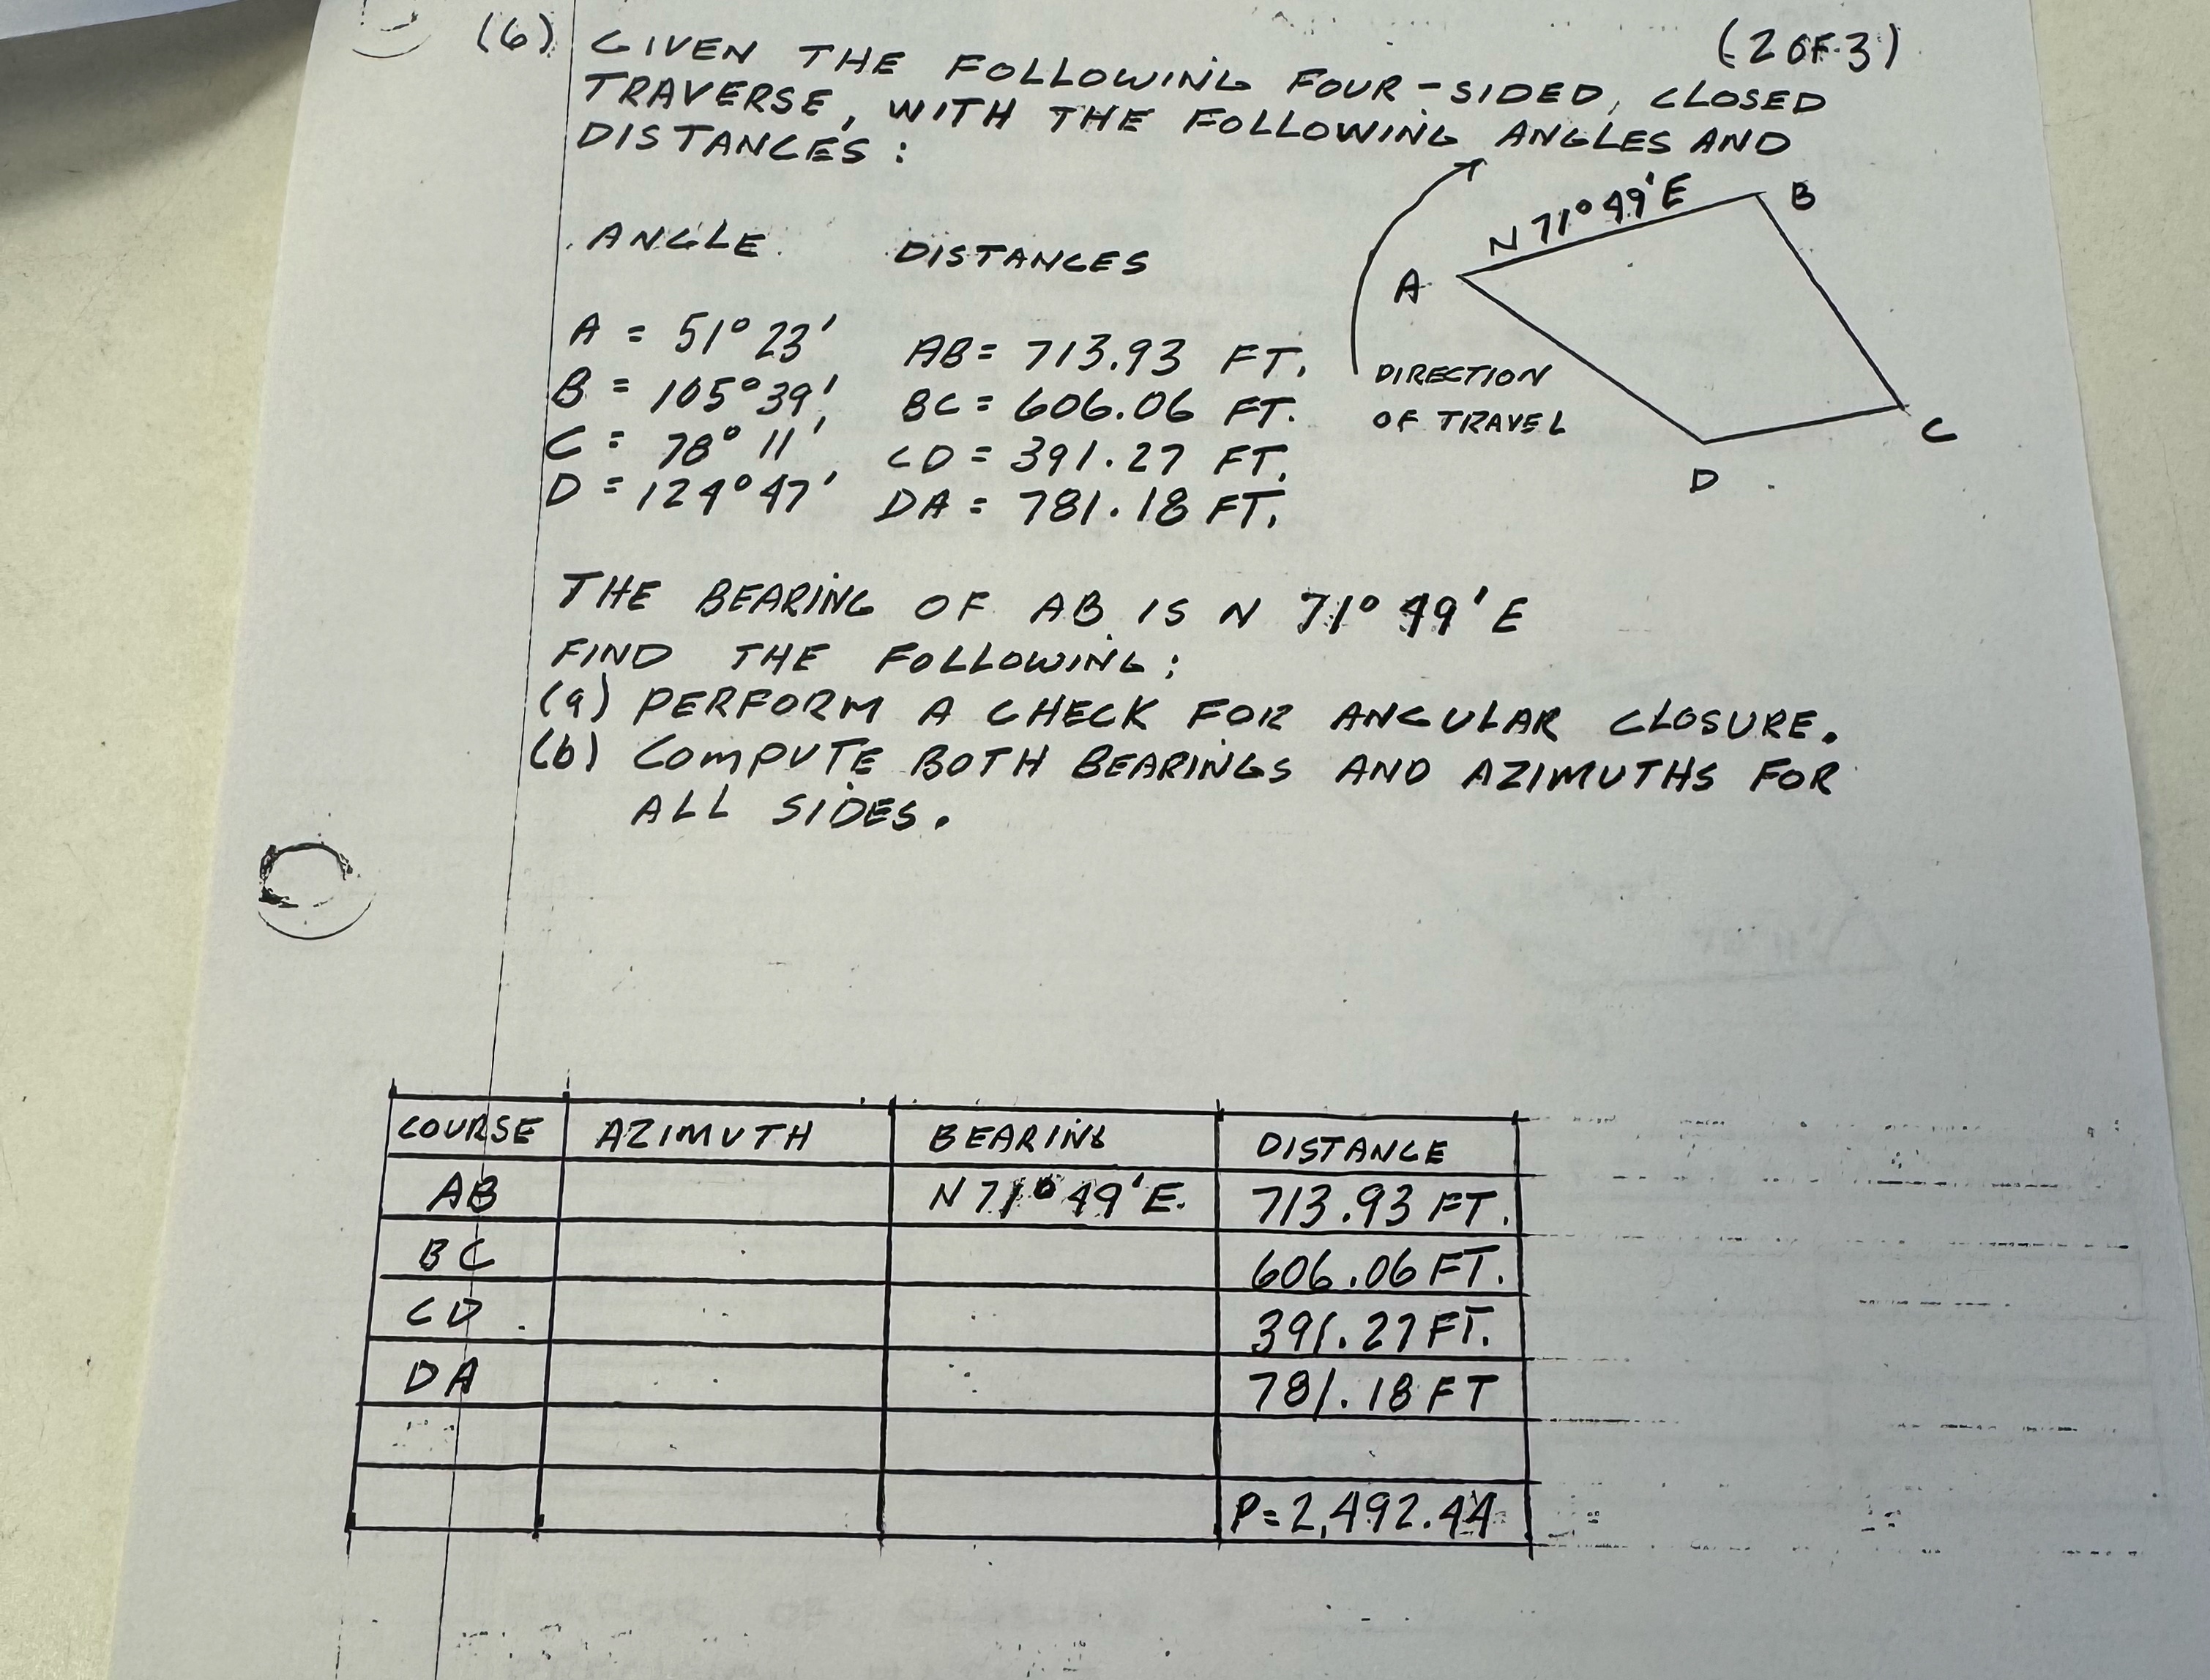 (6) GIVEN THE FOLLOWING FOUR-SIDED, CLOSED (2 OF 3)
TRAVERSE, WITH THE FOLLOWING ANGLES AND
DISTANCES:
ANGLE DISTANCES
A = 51° 23' AB = 713.93 FT.
B = 105° 39' BC = 606.06 FT.
C = 78° 11' CD = 391.27 FT.
D = 124° 47' DA = 781.18 FT.
N 71° 49' E
A
B
C
D
DIRECTION
OF TRAVEL
THE BEARING OF AB IS N 71° 49' E
FIND THE FOLLOWING:
(a) PERFORM A CHECK FOR ANGULAR CLOSURE.
(b) COMPUTE BOTH BEARINGS AND AZIMUTHS FOR
ALL SIDES.
COURSE AZIMUTH BEARING DISTANCE
AB N 71° 49' E. 713.93 FT.
BC 606.06 FT.
CD 391.27 FT.
DA 781.18 FT
P = 2,492.44